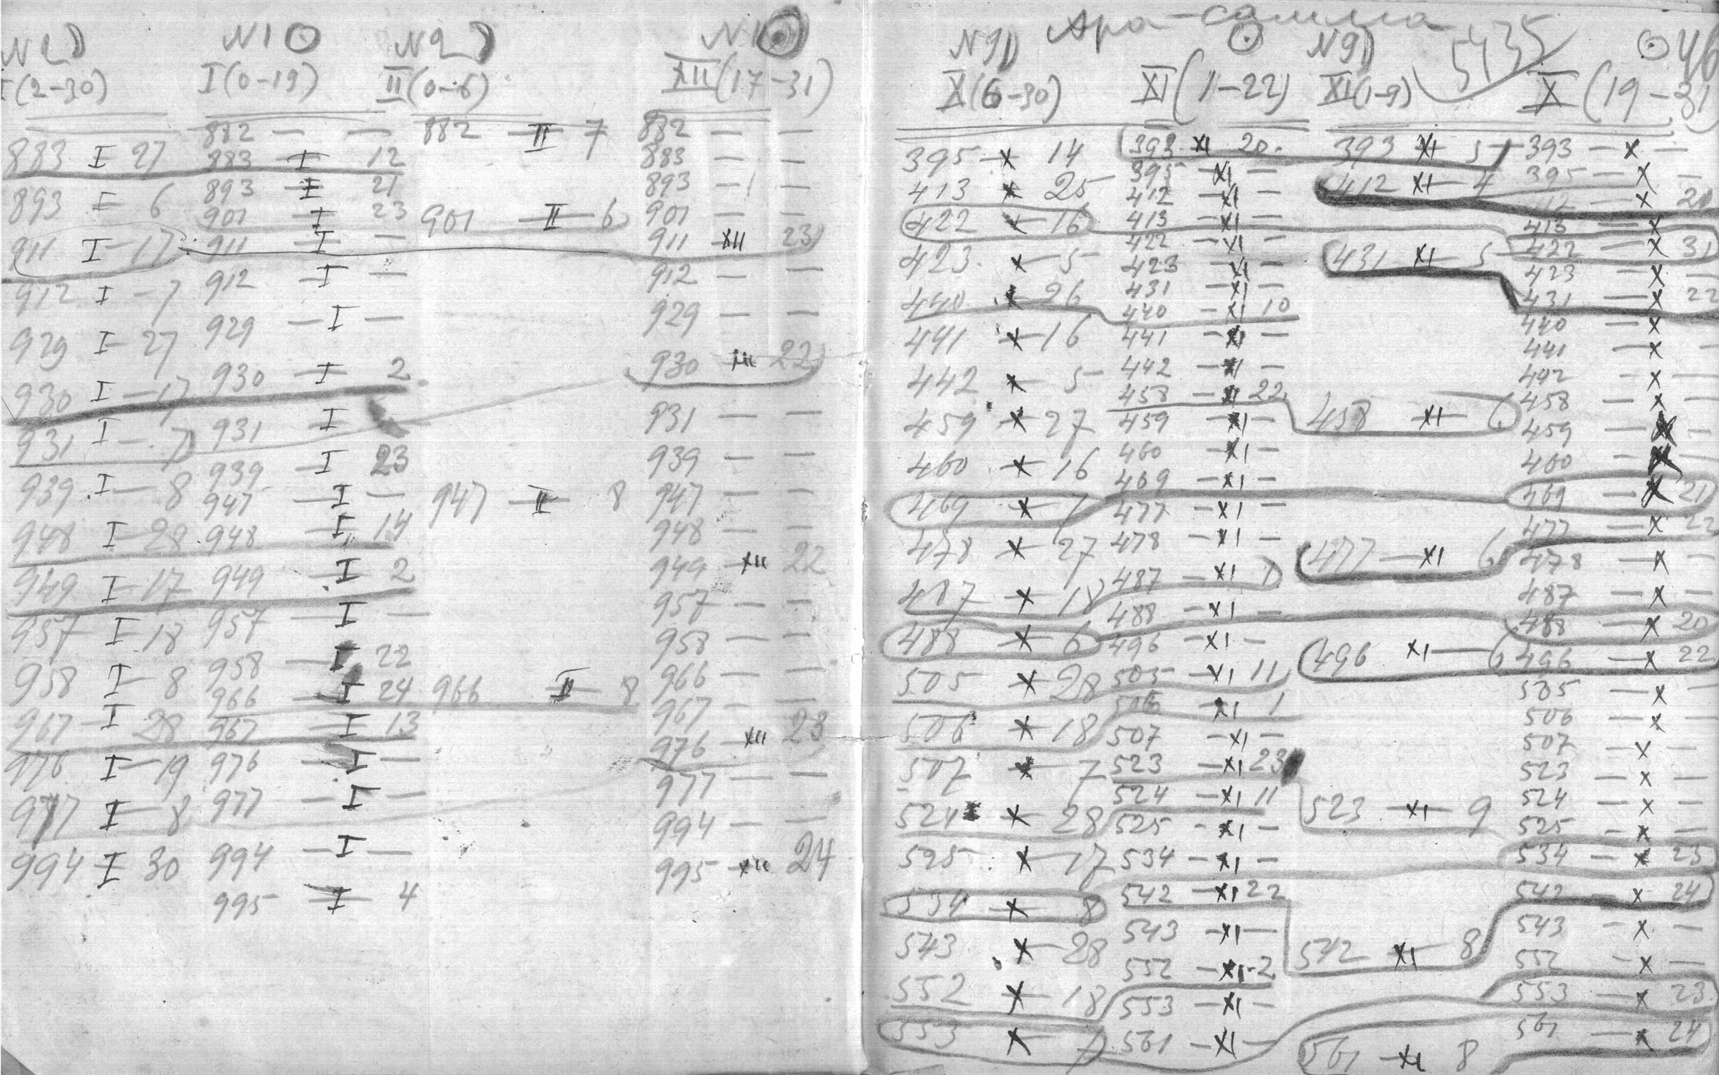 N2) N1 ⊙ N2) N1 ⊙
I(2-30) I(0-19) II(0-6) XII(17-31)
882 — — 882 II 7 882 — —
883 I 27 883 I 12 883 — —
893 I 6 893 I 21 893 — —
901 I 23 901 II 6 901 — —
911 I 17 911 I — 911 XII 23
912 I 7 912 I — 912 — —
929 I 27 929 — I — 929 — —
930 I 17 930 — I 2 930 XII 22
931 I 7 931 I 931 — —
939 I 8 939 — I 23 939 — —
947 — I — 947 — II 8 947 — —
948 I 28 948 — I 14 948 — —
949 I 17 949 — I 2 949 XII 22
957 I 18 957 — I — 957 — —
958 I 8 958 — I 22 958 — —
966 — I 24 966 II 8 966 — —
967 I 28 967 — I 13 967 — —
976 I 19 976 — I — 976 XII 23
977 I 8 977 — I — 977 — —
994 I 30 994 — I — 994 — —
995 — I 4 995 XII 24
5435
46
N9) ⊙ N9) ⊙
X(6-30) XI(1-22) XI(1-9) X(19-31)
393 XI 20 393 XI 5 393 — X —
395 X 14 395 XI — 395 — X —
413 X 25 412 — XI — 412 XI 4 412 — X 21
422 X 16 413 — XI — 413 — X —
422 — XI — 422 — X 31
423 X 5 423 — XI — 423 — X —
431 — XI — 431 XI 5 431 — X 22
440 X 26 440 — XI 10 440 — X
441 X 16 441 — XI — 441 — X —
442 X 5 442 — XI — 442 — X —
458 — XI 22 458 XI 6 458 — X —
459 X 27 459 — XI — 459 — X —
460 X 16 460 — XI — 460 — X —
469 X 7 469 — XI — 469 — X 21
477 — XI — 477 — XI 6 477 — X 22
478 X 27 478 — XI — 478 — X —
487 X 18 487 — XI 1 487 — X —
488 X 6 488 — XI — 488 — X 20
496 — XI — 496 XI 6 496 — X 22
505 X 28 505 — XI 11 505 — X
506 X 18 506 XI 1 506 — X —
507 X 7 507 — XI — 507 X —
523 — XI 23 523 XI 9 523 — X —
524 X 28 524 — XI 11 524 — X —
525 X 17 525 — XI — 525 — X —
534 X 8 534 — XI — 534 — X 23
542 — XI 22 542 XI 8 542 — X 24
543 X 28 543 — XI — 543 — X —
552 X 18 552 — XI 2 552 — X —
553 X 7 553 — XI — 553 — X 23
561 — XI — 561 XI 8 561 — X 24